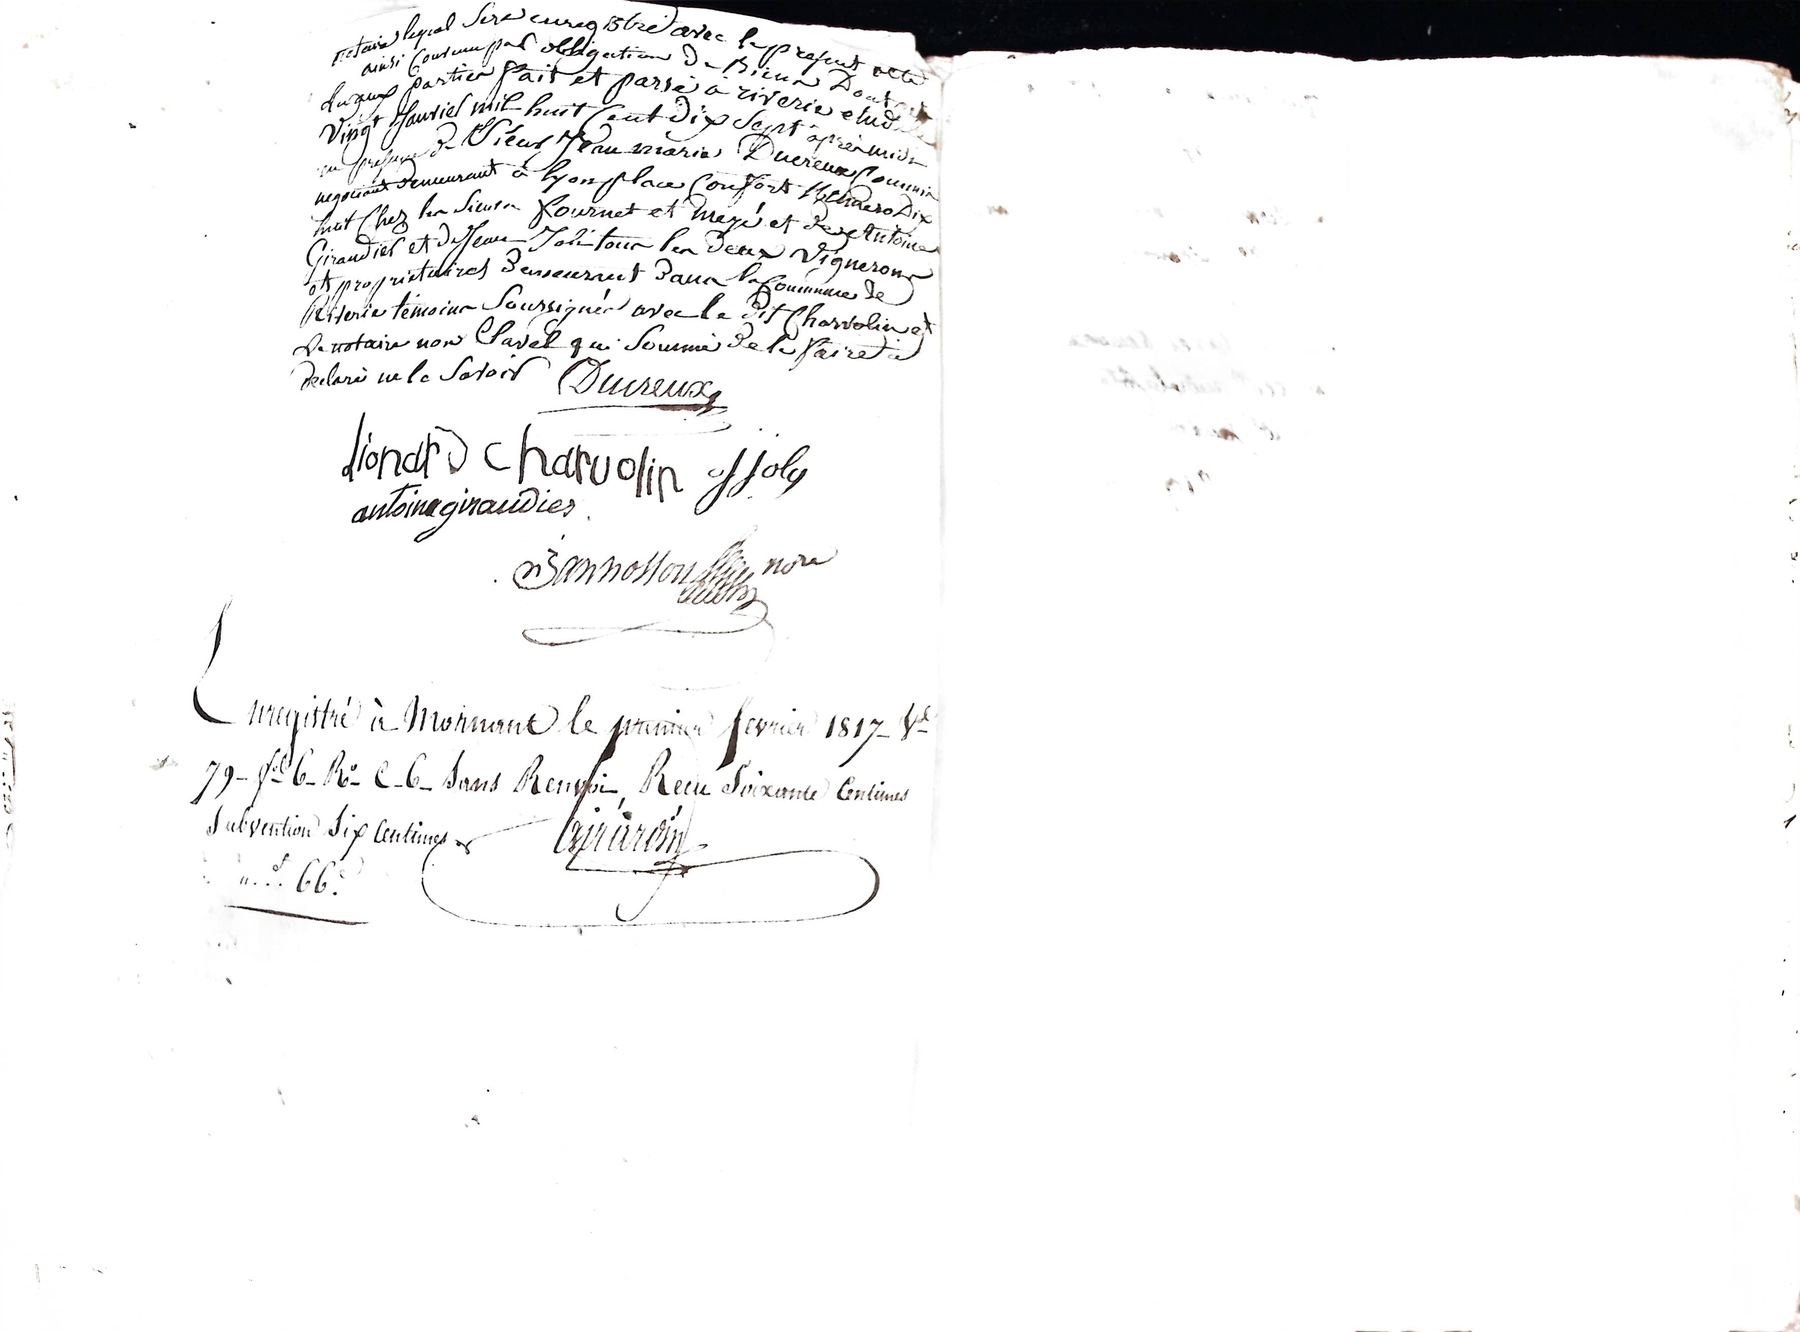 notaire lequel sera enregistré avec le present acte
ainsi convenu par obligation de Biens Dont acte
aux parties fait et passé à riverie etude le
Vingt Janvier mil huit Cent Dix Sept après midi
en presence de Sieur Jean marie Ducreux Commis
negociant demeurant à lyon place Confort Numero Dix
huit Chez les Sieurs fournet et et de Antoine
Giraudier et de Jean Joli tous les deux Vignerons
et proprietaires demeurant dans la Commune de
Riverie témoins Soussignés avec le dit Charvolin et
le notaire non Clavel qui Sommé de le faire a
declaré ne le Savoir Ducreux
lionard charvolin jjoly
antoine giraudier
Bannosson nore
Enregistré à Mornant le premier fevrier 1817 Vol
79 fol 6 Ro C 6 Sans Renvoi, Recu Soixante Centimes
Subvention Six Centimes Girardin
66c